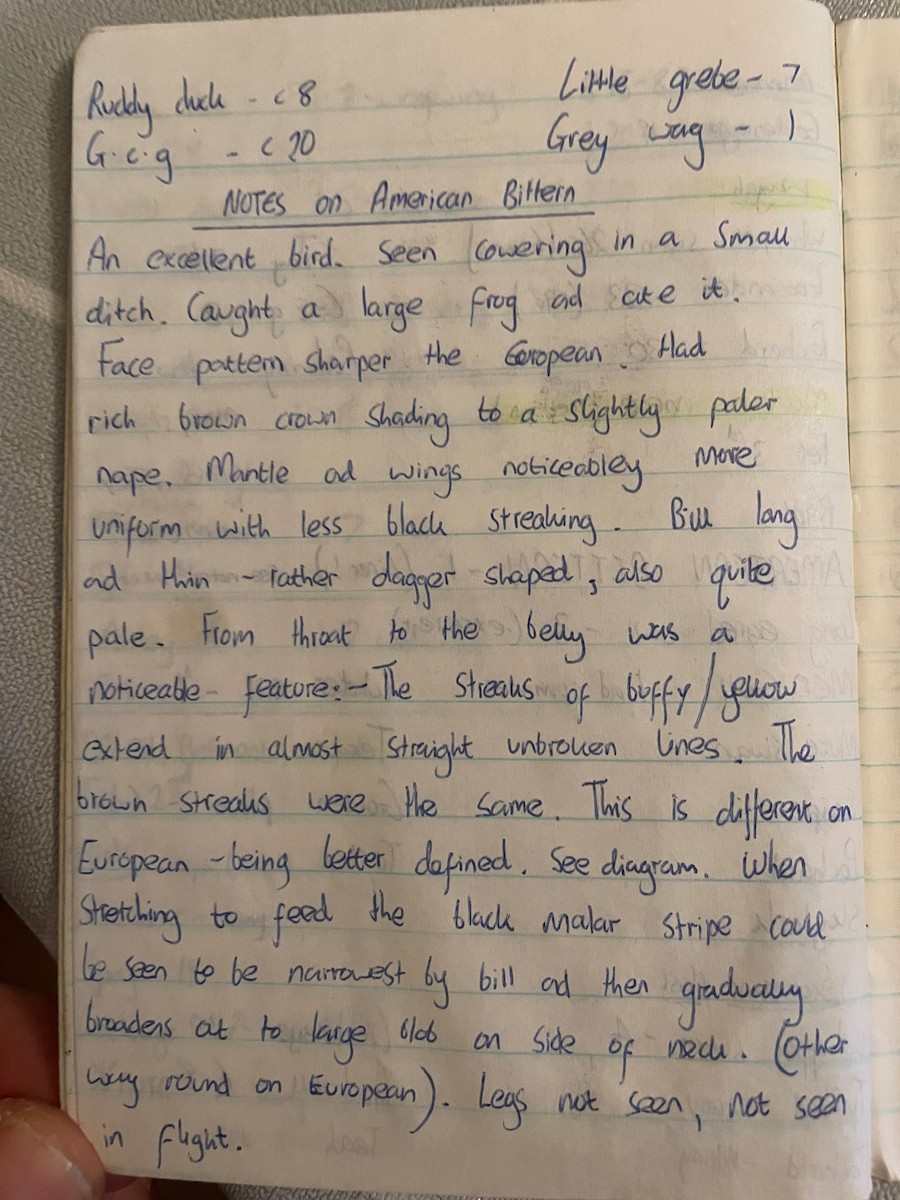 Ruddy duck - c 8 Little grebe - 7
G.c.g - c 20 Grey wag - 1
NOTES on American Bittern
An excellent bird. Seen cowering in a small
ditch. Caught a large frog ad ate it.
Face pattern sharper the European. Had
rich brown crown shading to a slightly paler
nape. Mantle ad wings noticeabley more
uniform with less black streaking. Bill long
ad thin - rather dagger shaped, also quite
pale. From throat to the belly was a
noticeable feature:- The streaks of buffy/yellow
extend in almost straight unbroken lines. The
brown streaks were the same. This is different on
European - being better defined. See diagram. When
stretching to feed the black malar stripe could
be seen to be narrowest by bill ad then gradually
broadens at to large blob on side of neck. (Other
way round on European). Legs not seen, not seen
in flight.